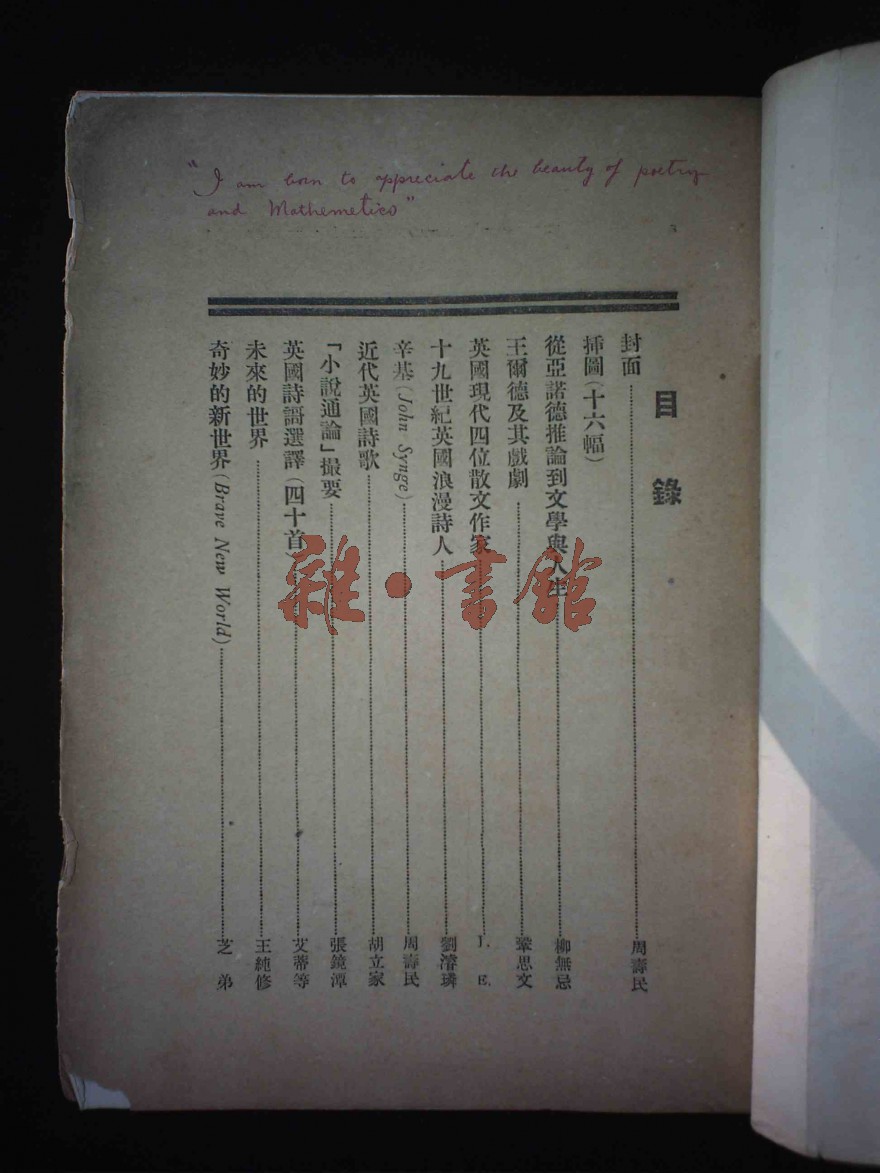 "I am born to appreciate the beauty of poetry
and Mathemetics"
目錄
封面 周壽民
插圖(十六幅)
從亞諾德推論到文學與人生 柳無忌
王爾德及其戲劇 鞏思文
英國現代四位散文作家 J. E.
十九世紀英國浪漫詩人 劉濬璘
辛基(John Synge) 周壽民
近代英國詩歌 胡立家
「小說通論」撮要 張鏡潭
英國詩謌選譯(四十首) 艾蒂等
未來的世界 王純修
奇妙的新世界(Brave New World) 芝弟
雜·書館